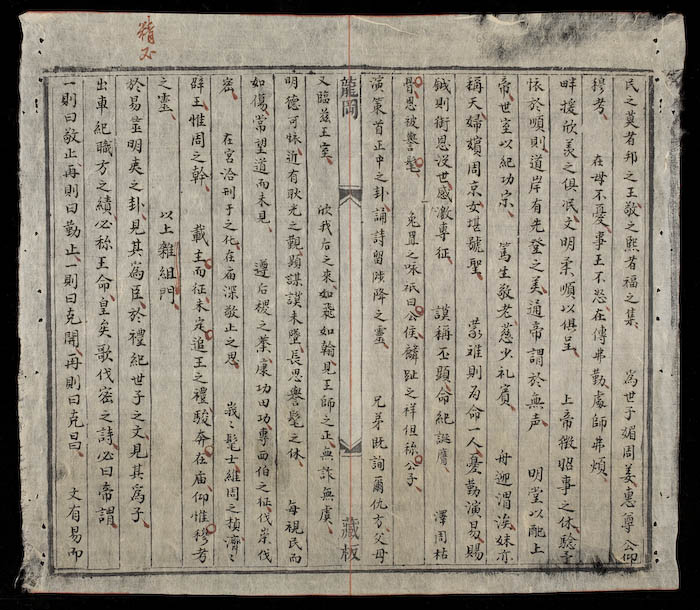 精不
民之莫者邦之王敬之熙者福之集　為世子媚周姜惠尊公仰
穆考　在母不憂事王不怒在傅弗勤處師弗煩
畔援欣羡之俱泯文明柔順以俱呈　上帝徵昭事之休駿
恢於順則道岸有先登之美通帝謂於無声　明堂以配上
帝世室以紀功宗　篤生敬老慈少礼賓　母迎渭涘妹亦
稱天婦嬪周京女堪號聖　蒙难則為命一人憂勤演易賜
鉞則銜恩沒世感激專征　謨稱丕顯命紀誕膺　澤周枯
骨恩被譽髦　兔罝之咏祇曰公侯麟趾之祥但稱公子
演策首正中之卦誦詩留陟降之靈　兄弟既詢爾仇方父母
龍岡
藏板
又臨茲王室　欣我后之來如飛如翰見王師之正無詐無虞
明德可懷近有耿光之覲顯謀謨未墜長思譽髦之休　每視民而
如傷常望道而未見　遵后稷之業康功田功專西伯之征伐崇伐
密　在宮洽刑于之化在庙深敬止之思　峩々髦士維周之楨濟々
辟王惟周之幹　載主而征未定追王之禮駿奔在庙仰惟穆考
之靈　以上雜組門
於易並明夷之卦見其為臣於禮紀世子之文見其為子
出車紀職方之績必称王命皇矣歌伐密之詩必曰帝謂
一則曰敬止再則曰勤止一則曰克開再則曰克昌　文有易而